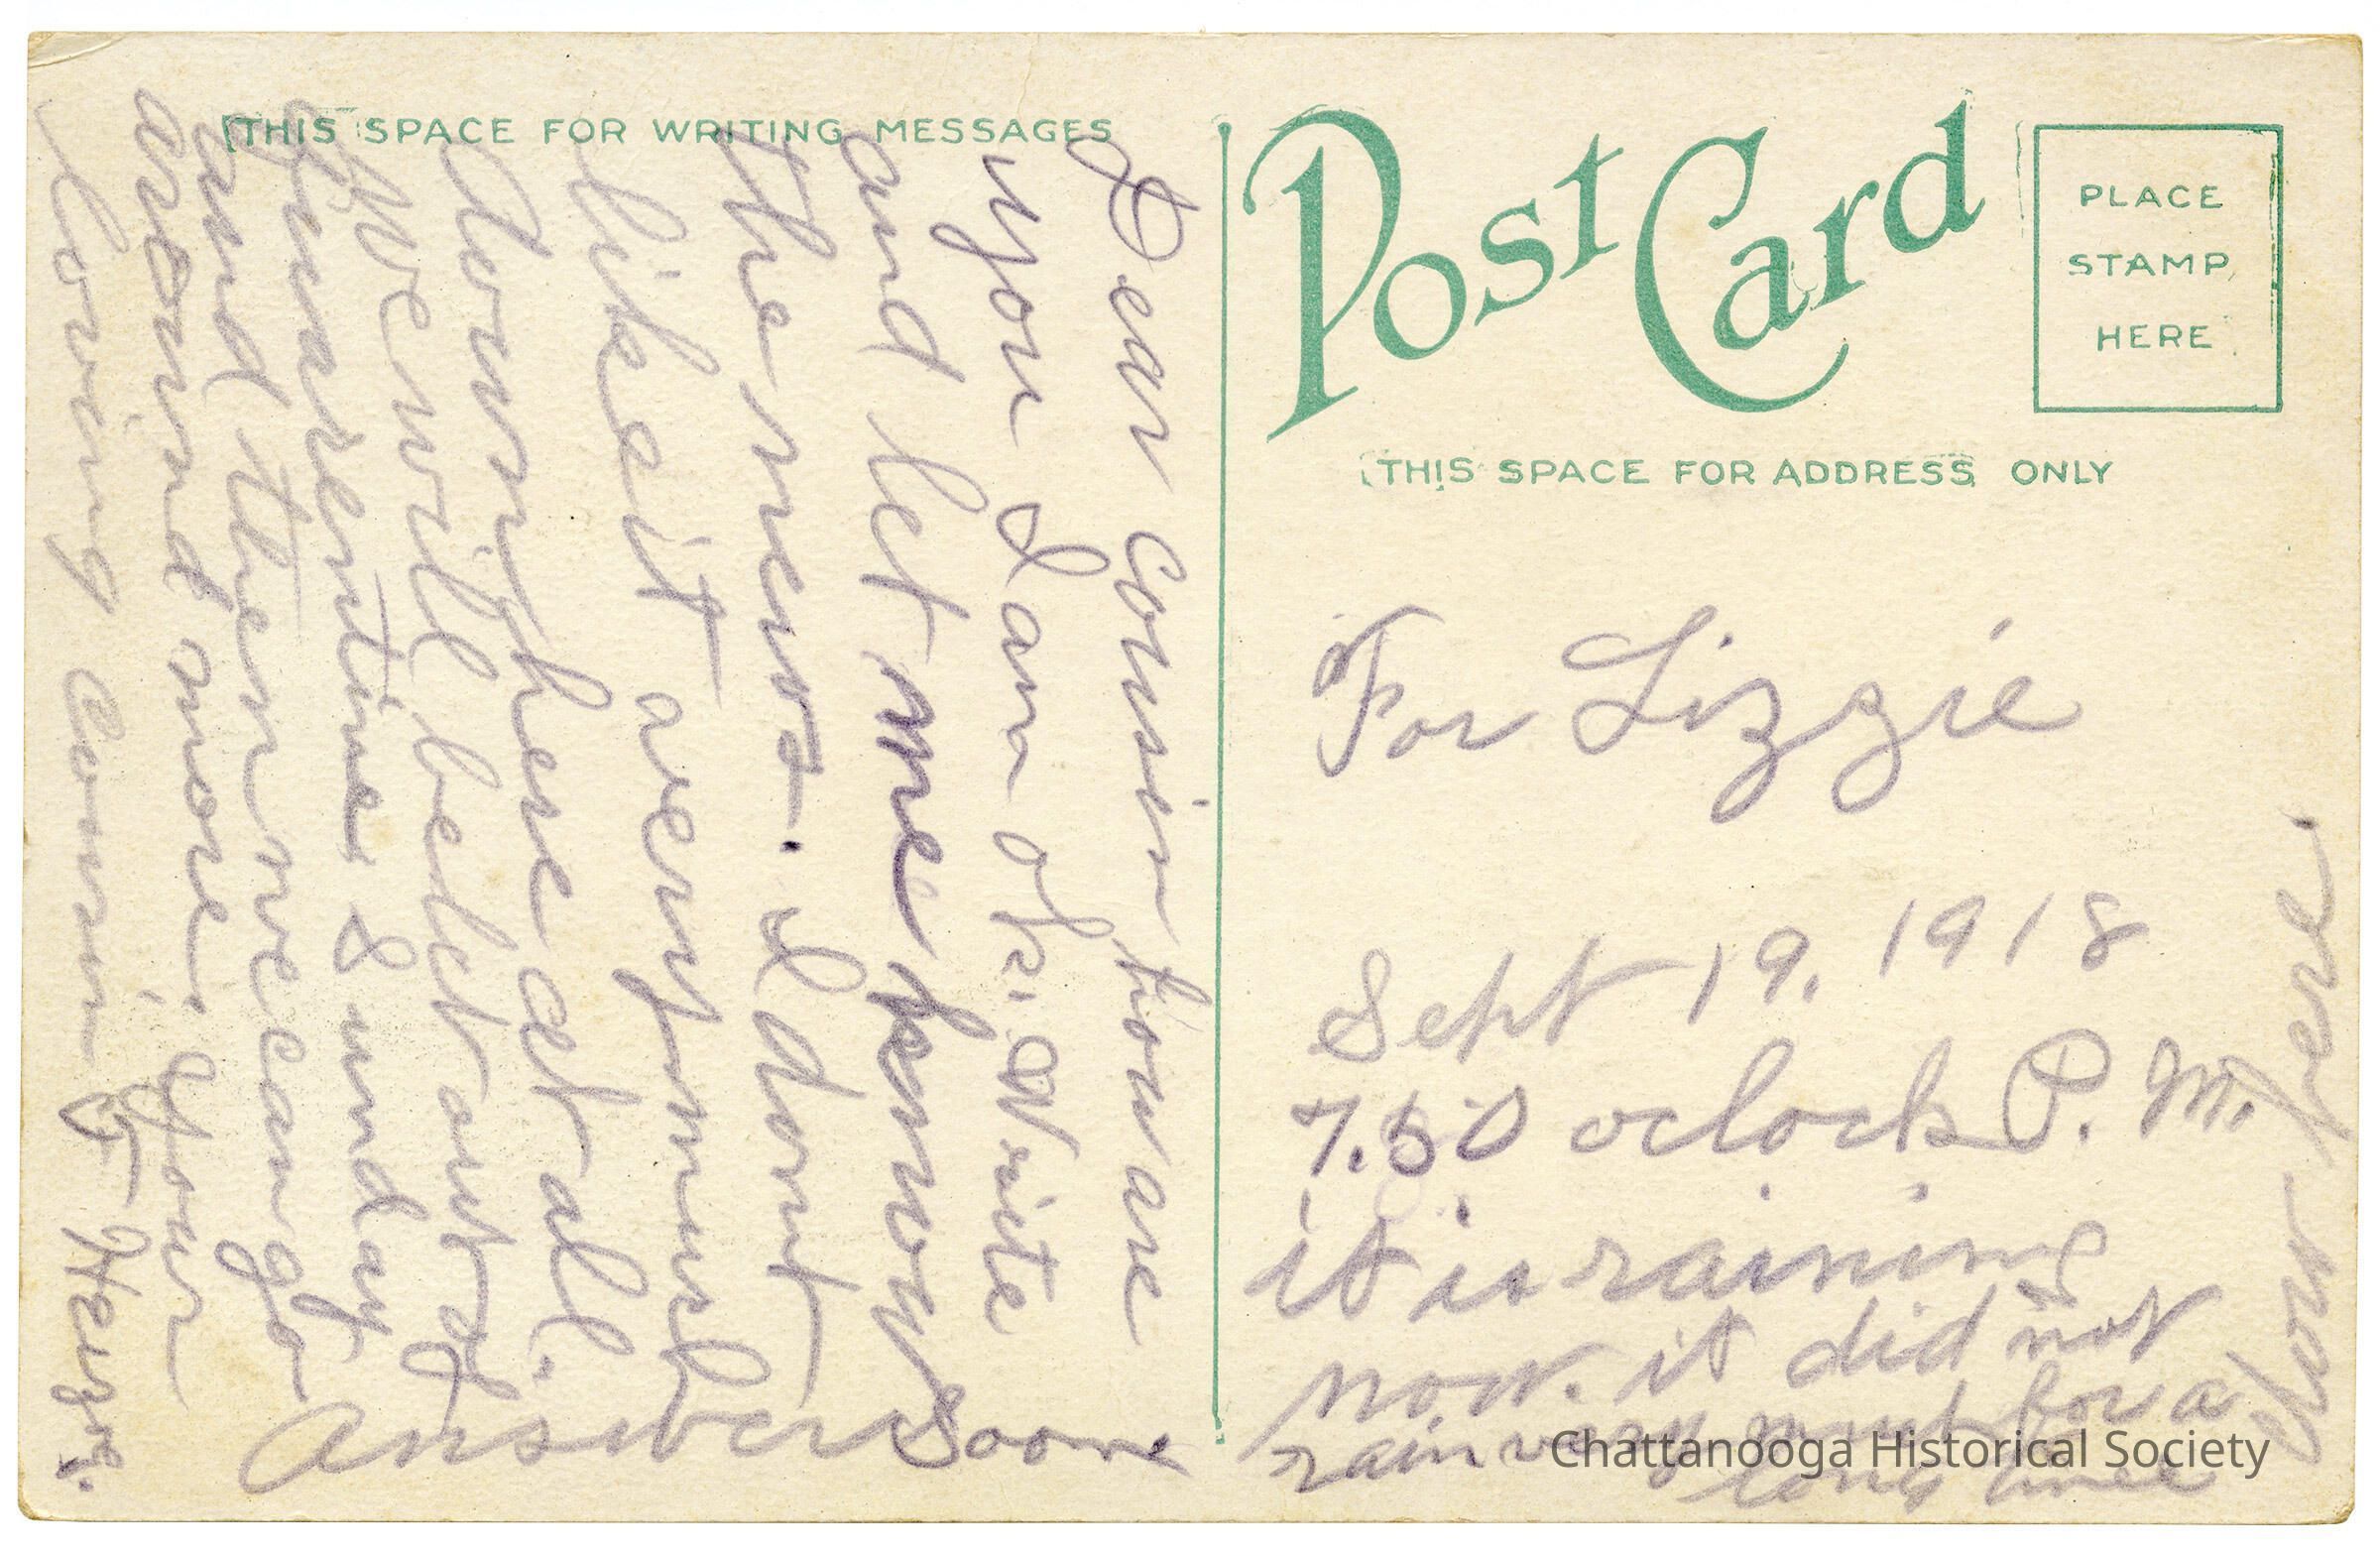 THIS SPACE FOR WRITING MESSAGES
Dear Cousin how are
you I am ok. Write
and let me know
the news. I dont
like it avery much
down here at all.
We will be let out of
quarentine Sunday
and then we can go
around more. Your
loving Cousin Henry.
Answer Soon
Post Card
PLACE
STAMP
HERE
THIS SPACE FOR ADDRESS ONLY
For Lizzie
Sept 19. 1918
7.50 oclock P. M.
it is raining
now. it did not
rain very much for a
long time
down here.
Chattanooga Historical Society